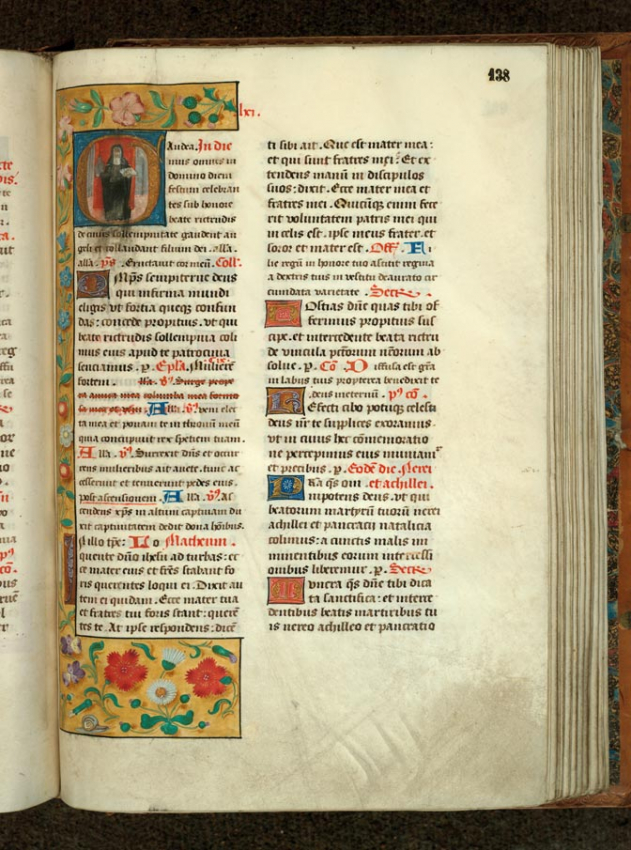 138
lxi.
Audea. In die
mus omnes in
domino diem
festum celebran
tes sub honore
beate rictrudis
de cuius sollempnitate gaudent an
geli et collaudant filium dei. alla.
alla. ps. Eructauit cor meu. Coll.
Mps sempiterne deus
qui infirma mundi
eligis vt fortia queqz confun
das: concede propitius. vt qui
beate rictrudis sollempnia coli
mus eius apud te patrocinia
senciamus. p. Epla. Muliere
fortem. Alla. v. Surge prope
ra amica mea columba mea formo
sa mea et veni. Alla. v. veni elec
ta mea et ponam te in thronu meu
quia concupiuit rex speciem tuam.
Alla. v. Surrexit dns et occur
rens mulieribus ait auete. tunc ac
cesserunt et tenuerunt pedes eius.
post ascensionem. Alla. v. As
cendens xps in altum captiuam du
xit captiuitatem dedit dona hoibus.
In illo tpe: Lo Matheum.
quente dno ihesu ad turbas: ec
ce mater eius et fres stabant fo
ris querentes loqui ei. Dixit au
tem ei quidam. Ecce mater tua
et fratres tui foris stant: quere
tes te. At ipse respondens: dice
ti sibi ait. Que est mater mea:
et qui sunt fratres mei? Et ex
tendens manu in discipulos
suos: dixit. Ecce mater mea et
fratres mei. Quicuqz enim fece
rit voluntatem patris mei qui
in celis est. ipse meus frater et
soror et mater est. Off. Fi
lie regu in honore tuo astitit regina
a dextris tuis in vestitu deaurato cir
cumdata varietate. Secr.
Ostias dne quas tibi of
ferimus propitius sus
cipe. et intercedente beata rictru
de vincula pctorum nrorum ab
solue. p. Co. Diffusa est gra
in labiis tuis propterea benedixit te
deus meternu. p co.
Refecti cibo potuqz celesti
deus nr te supplices exoramus.
vt in cuius hec comemoratio
ne percepimus eius muniam
et precibus. p. Eode die Nerei
et achillei.
Da qs om
nipotens deus. vt qui
beatorum martyru tuoru nerei
achillei et pancracii natalicia
colimus: a cunctis malis im
minentibus eorum intercessi
onibus liberemur. p. Secr.
Munera qs dne tibi dica
ta sanctifica: et interce
dentibus beatis martiribus tu
is nereo achilleo et pancratio